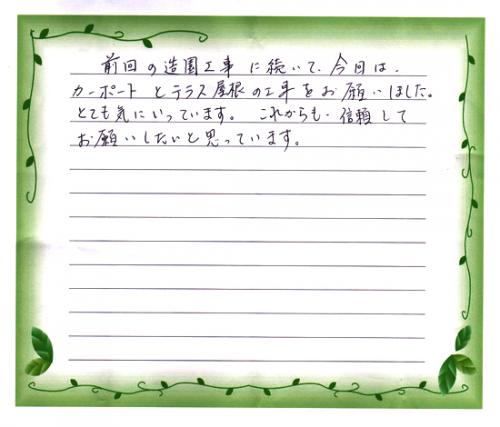 前回の造園工事に続いて、今回は、
カーポートとテラス屋根の工事をお願いしました。
とても気にいっています。これからも、信頼して
お願いしたいと思っています。